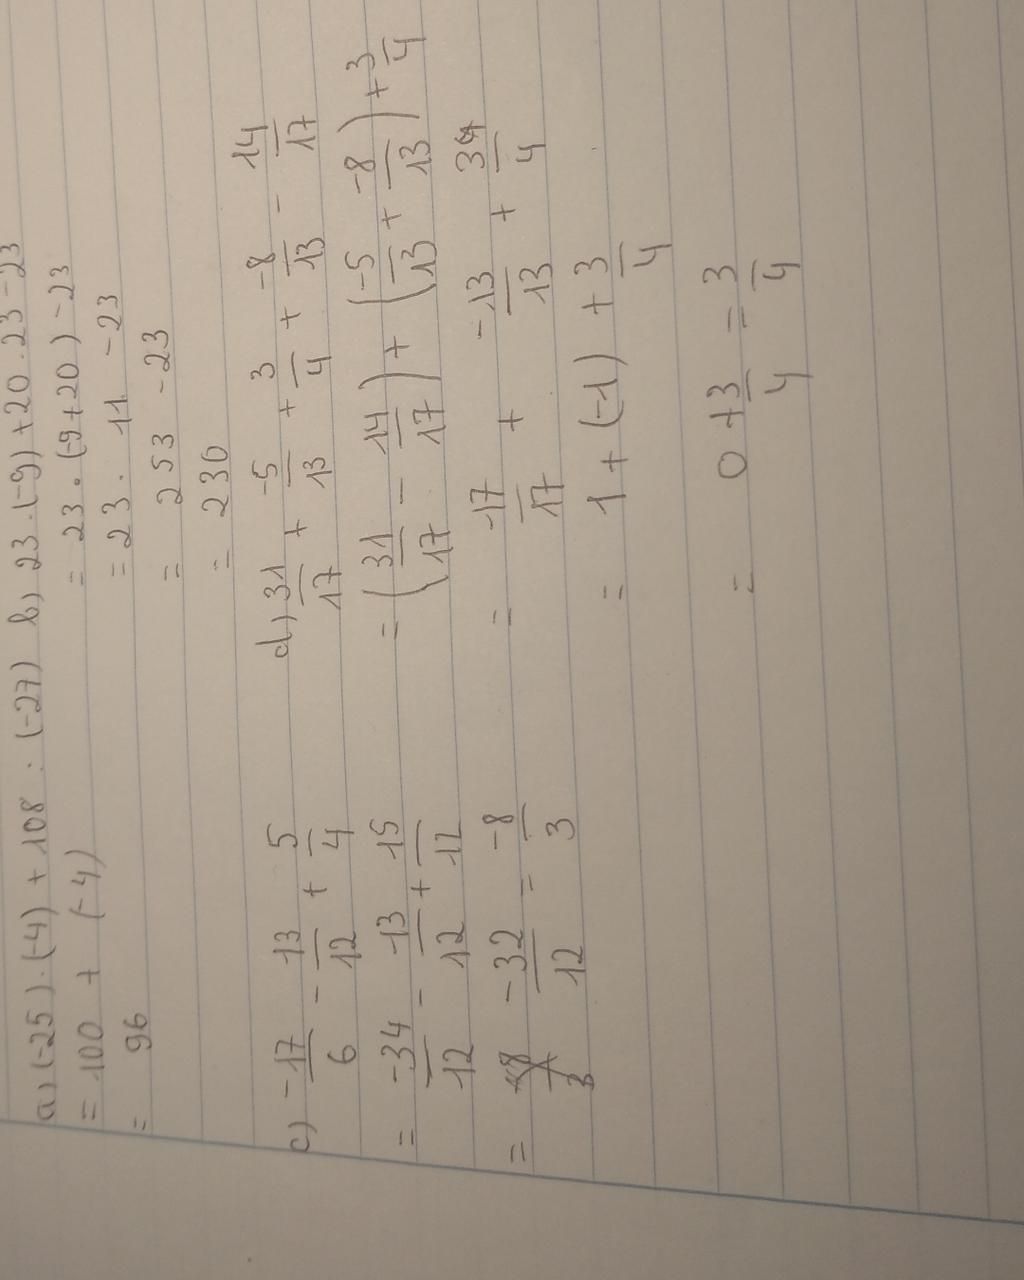 a, (-25).(-4) + 108 : (-27)
= 100 + (-4)
= 96
b, 23.(-9) + 20.23 - 23
= 23.(-9 + 20) - 23
= 23. 11 - 23
= 253 - 23
= 230
c) -17/6 - 13/12 + 5/4
= -34/12 - 13/12 + 15/12
= -32/12 = -8/3
d, 31/17 + -5/13 + 3/4 + -8/13 - 14/17
= (31/17 - 14/17) + (-5/13 + -8/13) + 3/4
= 17/17 + -13/13 + 3/4
= 1 + (-1) + 3/4
= 0 + 3/4 = 3/4